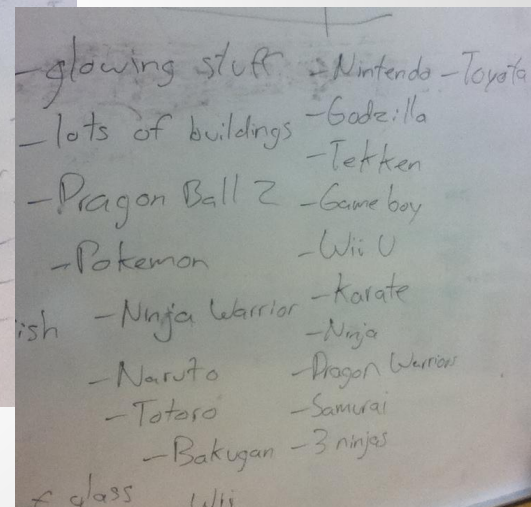 - glowing stuff
- lots of buildings
- Dragon Ball Z
- Pokemon
ish
- Ninja Warrior
- Naruto
- Totoro
- Bakugan
- Nintendo - Toyota
- Godzilla
- Tekken
- Gameboy
- Wii U
- Karate
- Ninja
- Dragon Warriors
- Samurai
- 3 ninjas
f glass
Wii